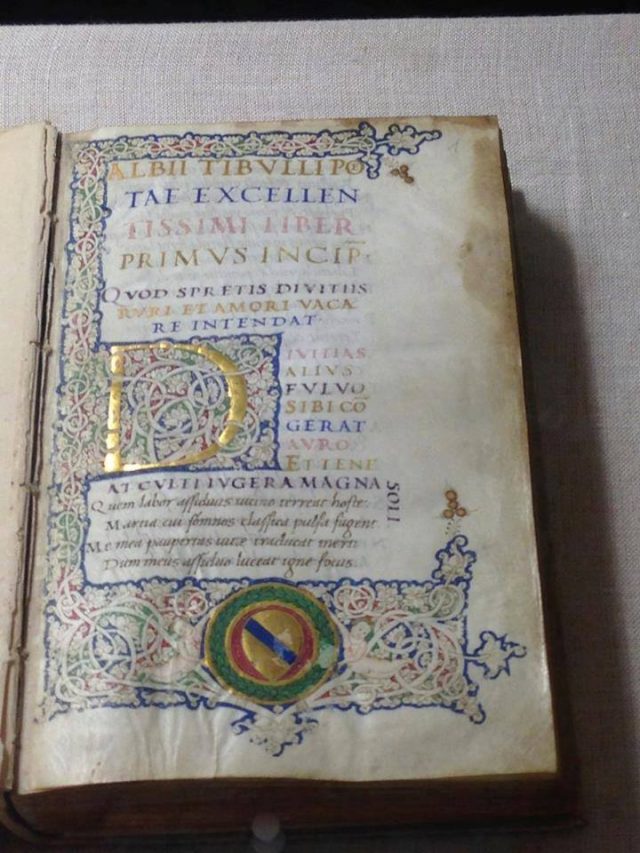 ALBII TIBVLLI PO
TAE EXCELLEN
TISSIMI LIBER
PRIMVS INCIP̄·
QVOD SPRETIS DIVITIIS
RVRI ET AMORI VACA
RE INTENDAT·
DIVITIAS
ALIVS
FVLVO
SIBI CŌ
GERAT
AVRO
ET TENE
AT CVLTI IVGERA MAGNA
SOLI
Quem labor assiduus uicino terreat hoste:
Martia cui somnos classica pulsa fugent
Me mea paupertas uitae traducat inerti
Dum meus assiduo luceat igne focus.